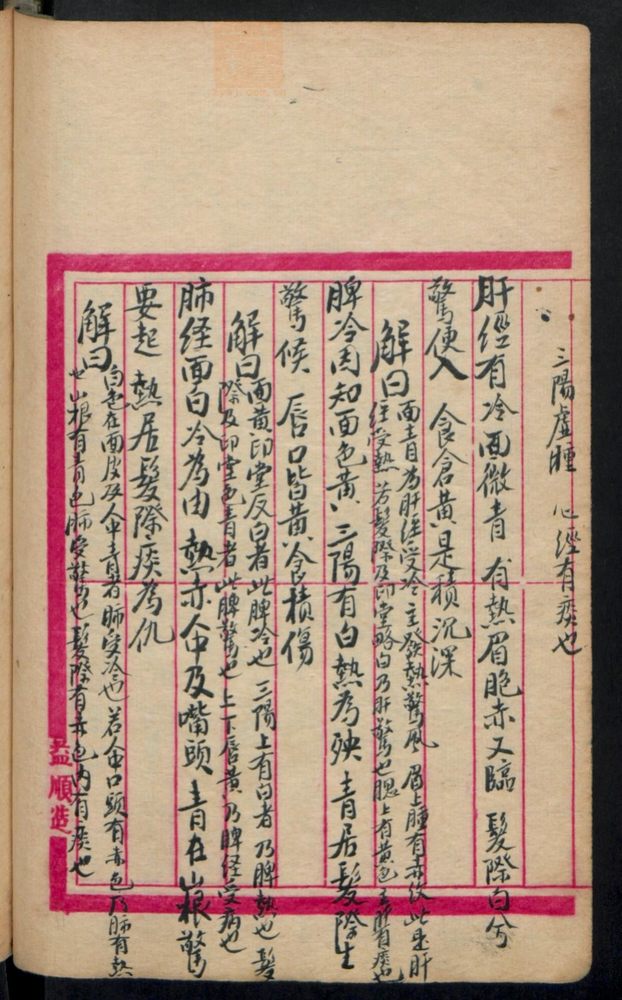 三陽虛腫　心經有痰也
肝經有冷面微青　有熱眉胞赤又臨　髮際白兮
驚便入　食倉黃是積沉深
解曰
面青為肝經受冷主發熱驚風　眉上腫有赤紋此是肝
經受熱　若髮際及印堂略白乃肝驚也腮上有黃色主肝有痰也
脾冷因知面色黃　三陽有白熱為殃　青居髮際生
驚候　唇口皆黃食積傷
解曰
面黃印堂反白者此脾冷也　三陽上有白者乃脾熱也　髮
際及印堂色青者此脾驚也　上下唇黃乃脾經受病也
肺經面白冷為由　熱赤人中及嘴頭　青在山根驚
要起　熱居髮際痰為仇
解曰
白色在面皮及人中青者肺受冷也　若人中口頭有赤色乃肺有熱
也山根有青色肺受驚也　髮際有赤色內有痰也
益順造